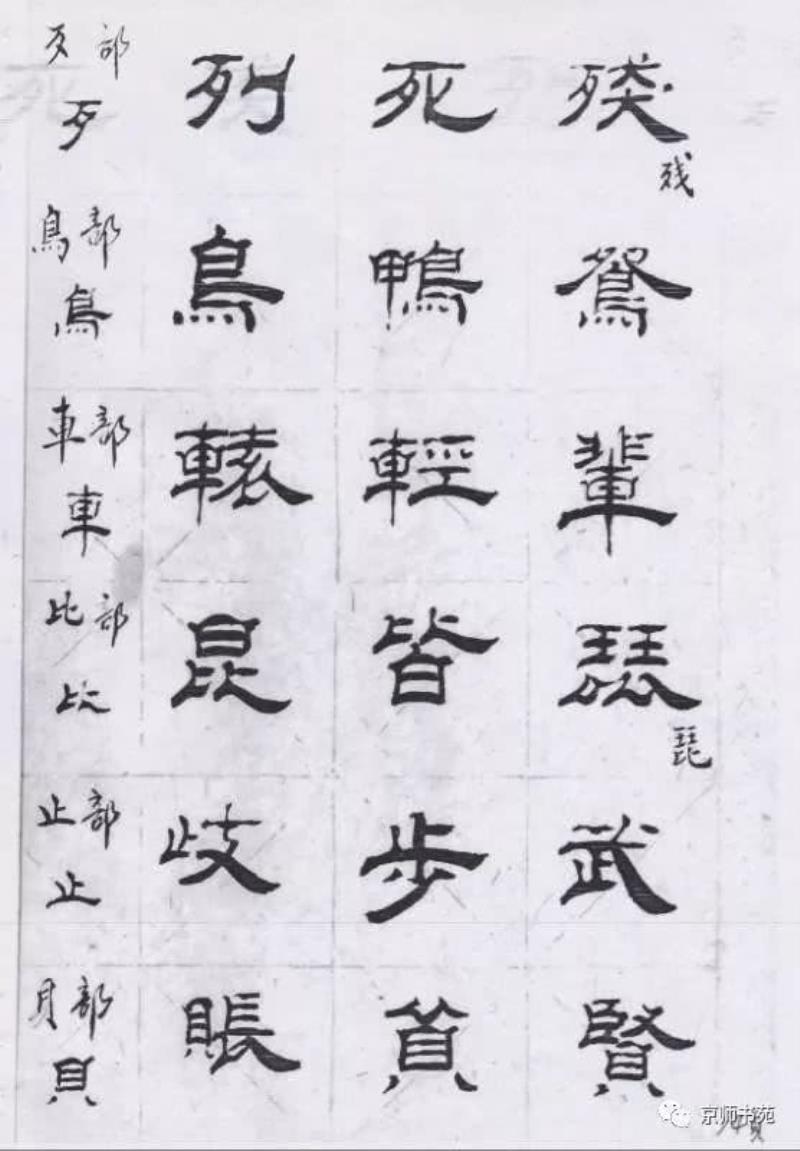 歹部 列 死 残
歹 残
鳥部 鳥 鴨 鴛
鳥
車部 轅 輕 輩
車
比部 昆 皆 琵
比 琵
止部 歧 步 武
止
貝部 賬 賢
貝
京师书苑